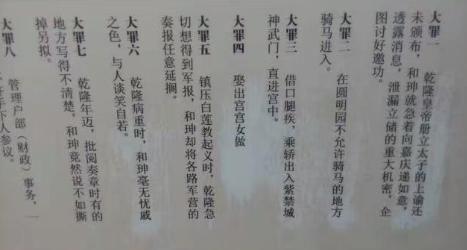 大罪一　乾隆皇帝册立太子的上谕还
未颁布，和珅就急着向嘉庆递如意，
透露消息，泄漏立储的重大机密，企
图讨好邀功。
大罪二　在圆明园不允许骑马的地方
骑马进入。
大罪三　借口腿疾，乘轿出入紫禁城
神武门，直进宫中。
大罪四　娶出宫宫女做
大罪五　镇压白莲教起义时，乾隆急
切想得到军报，和珅却将各路军营的
奏报任意延搁。
大罪六　乾隆病重时，和珅毫无忧戚
之色，与人谈笑自若。
大罪七　乾隆年迈，批阅奏章时有的
地方写得不清楚，和珅竟然说不如撕
掉另拟。
大罪八　管理户部（财政）事务，一
下人参议。